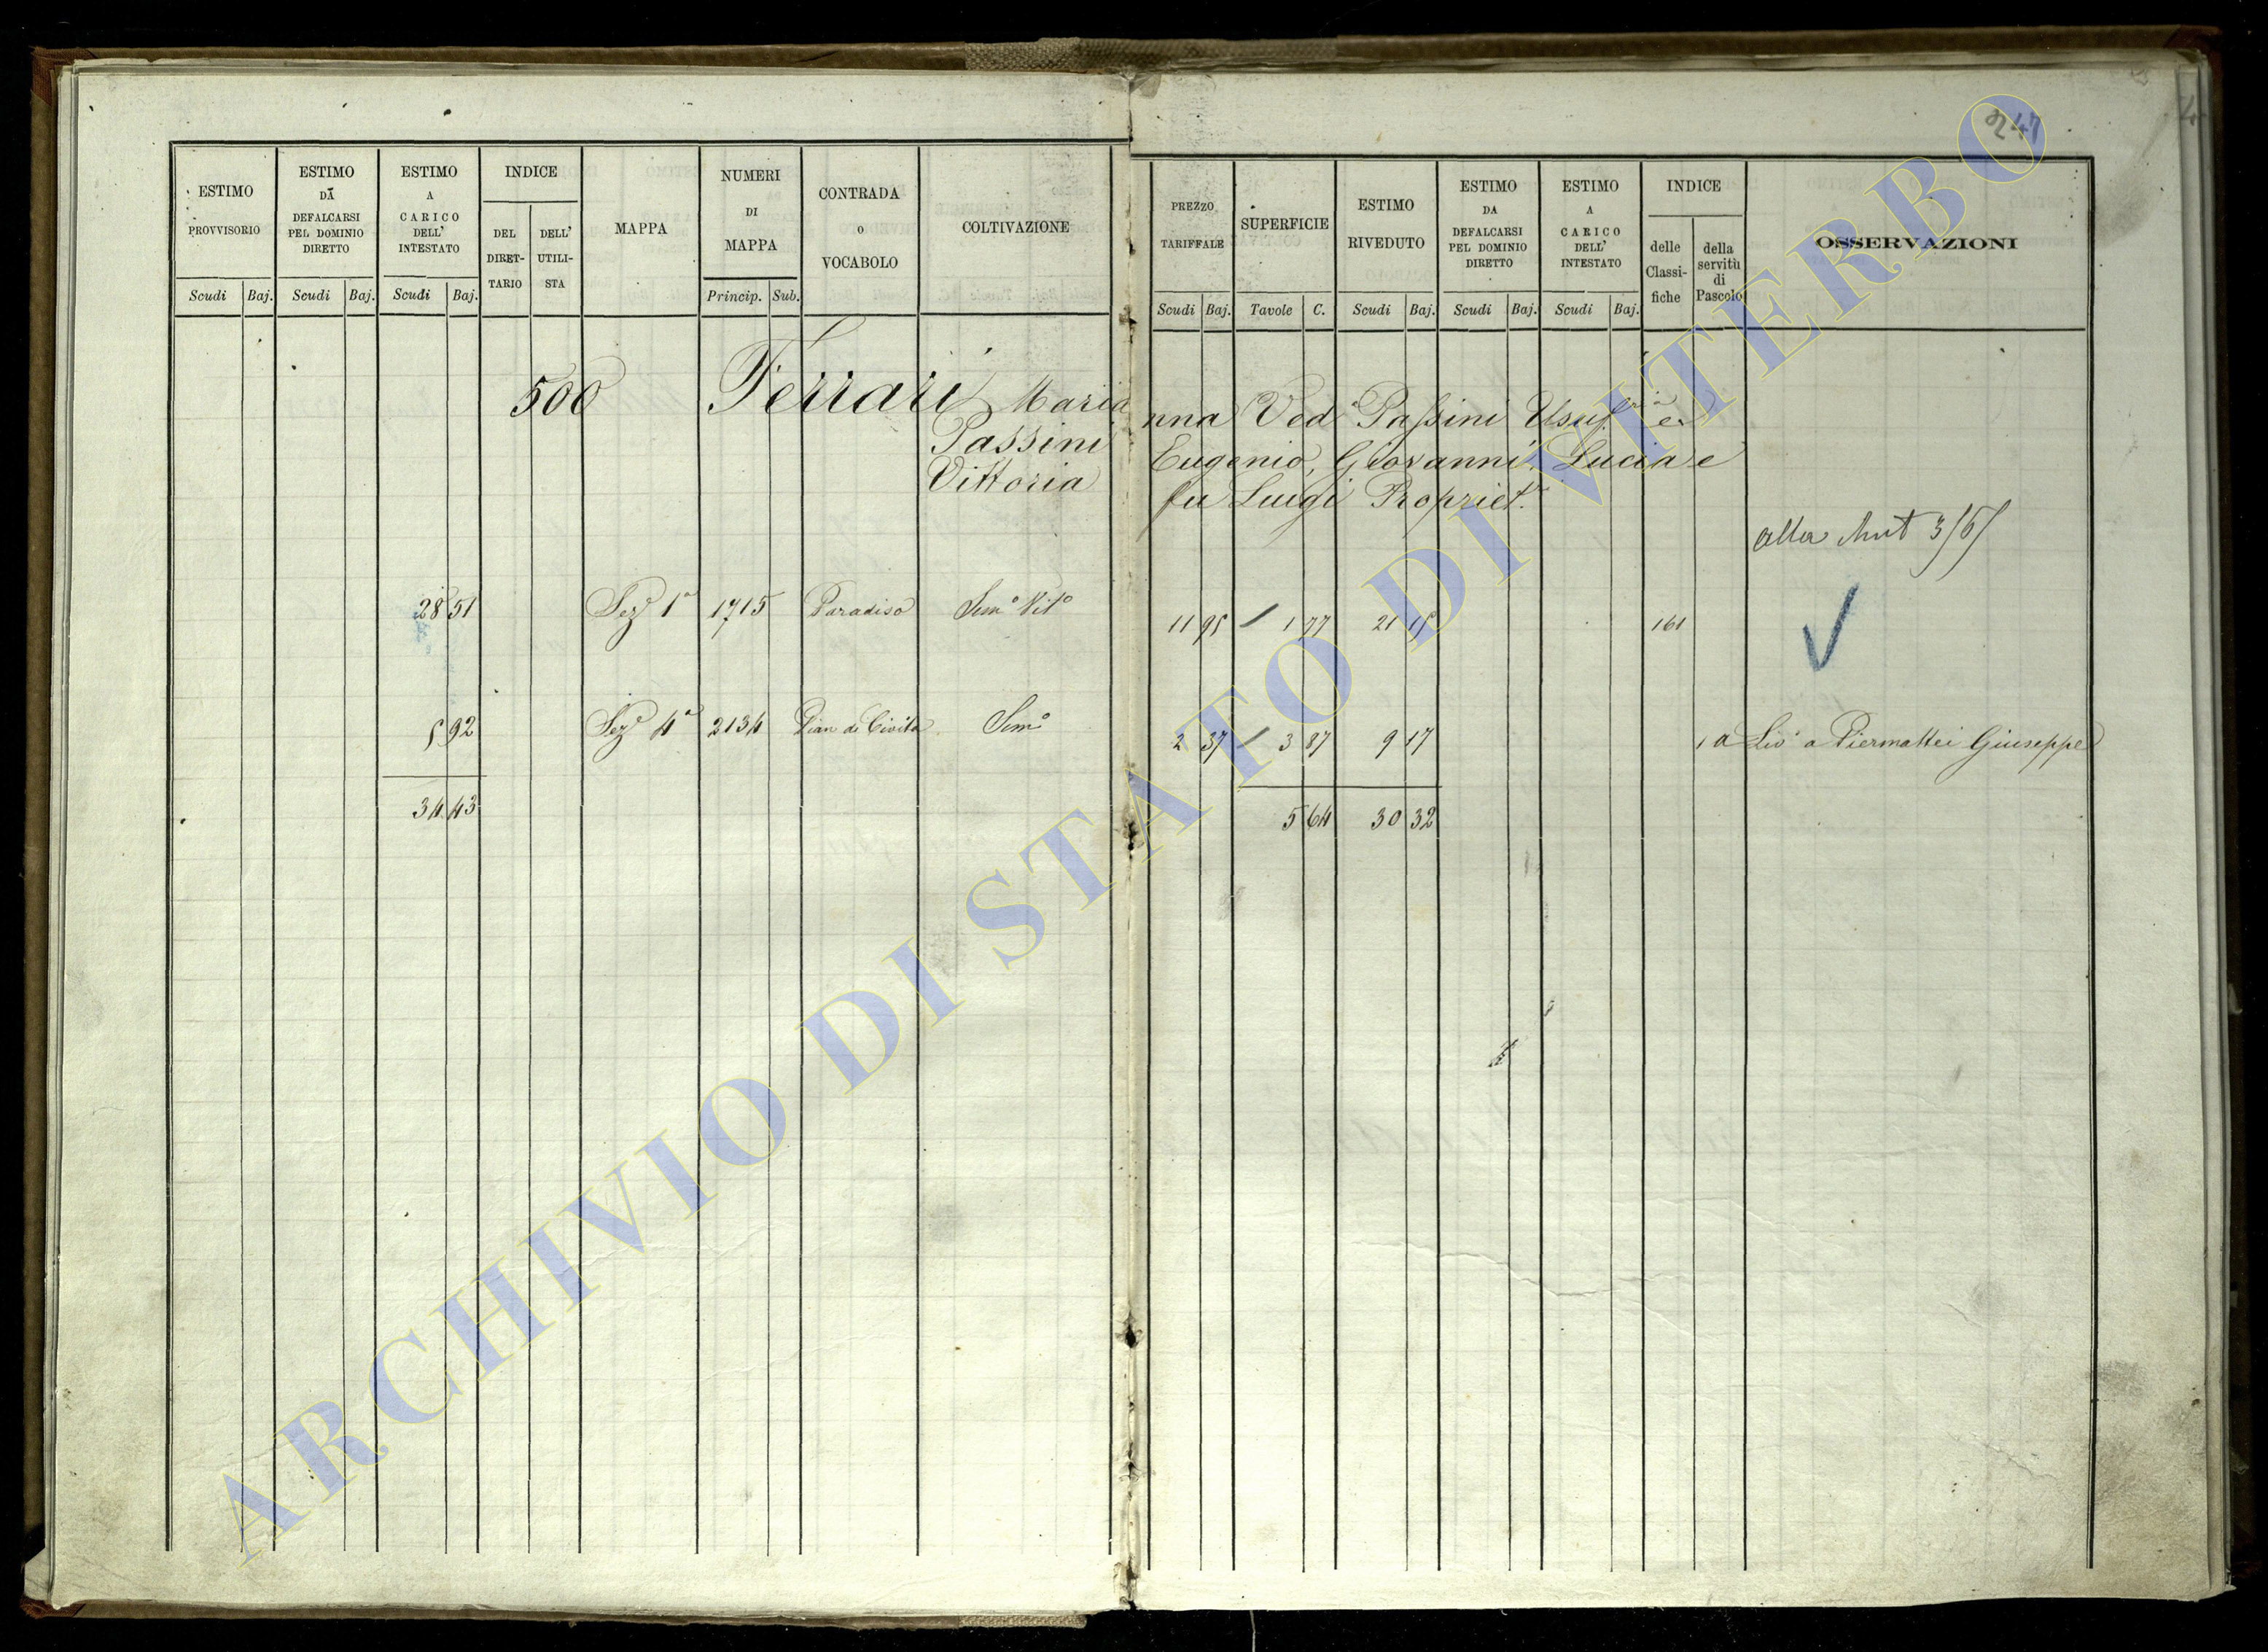 247
ESTIMO PROVVISORIO
ESTIMO DA DEFALCARSI PEL DOMINIO DIRETTO
ESTIMO A CARICO DELL' INTESTATO
INDICE
DEL DIRET-TARIO
DELL' UTILI-STA
MAPPA
NUMERI DI MAPPA
CONTRADA o VOCABOLO
COLTIVAZIONE
Scudi Baj. Scudi Baj. Scudi Baj. Princip. Sub.
PREZZO TARIFFALE
SUPERFICIE
ESTIMO RIVEDUTO
ESTIMO DA DEFALCARSI PEL DOMINIO DIRETTO
ESTIMO A CARICO DELL' INTESTATO
INDICE
delle Classi-fiche
della servitù di Pascolo
OSSERVAZIONI
Scudi Baj. Tavole C. Scudi Baj. Scudi Baj. Scudi Baj.
500 Ferrari Marianna Ved.ª Passini Usuf.ria e
Passini Eugenio, Giovanni, Lucia e
Vittoria fu Luigi Propriet.
alla Mut 3/6/
28 51 Sez.e 1ª 1715 Paradiso Sem.o Vit.o 11 95 / 1 77 21 15 161
5 92 Sez.e 4ª 2134 Pian di Civita Sem.o 2 37 / 3 87 9 17 1 a Liv.o a Piermattei Giuseppe
34 43 5 64 30 32
ARCHIVIO DI STATO DI VITERBO